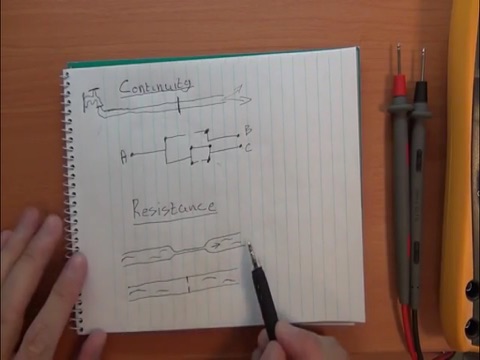 Continuity
B
A
C
Resistance